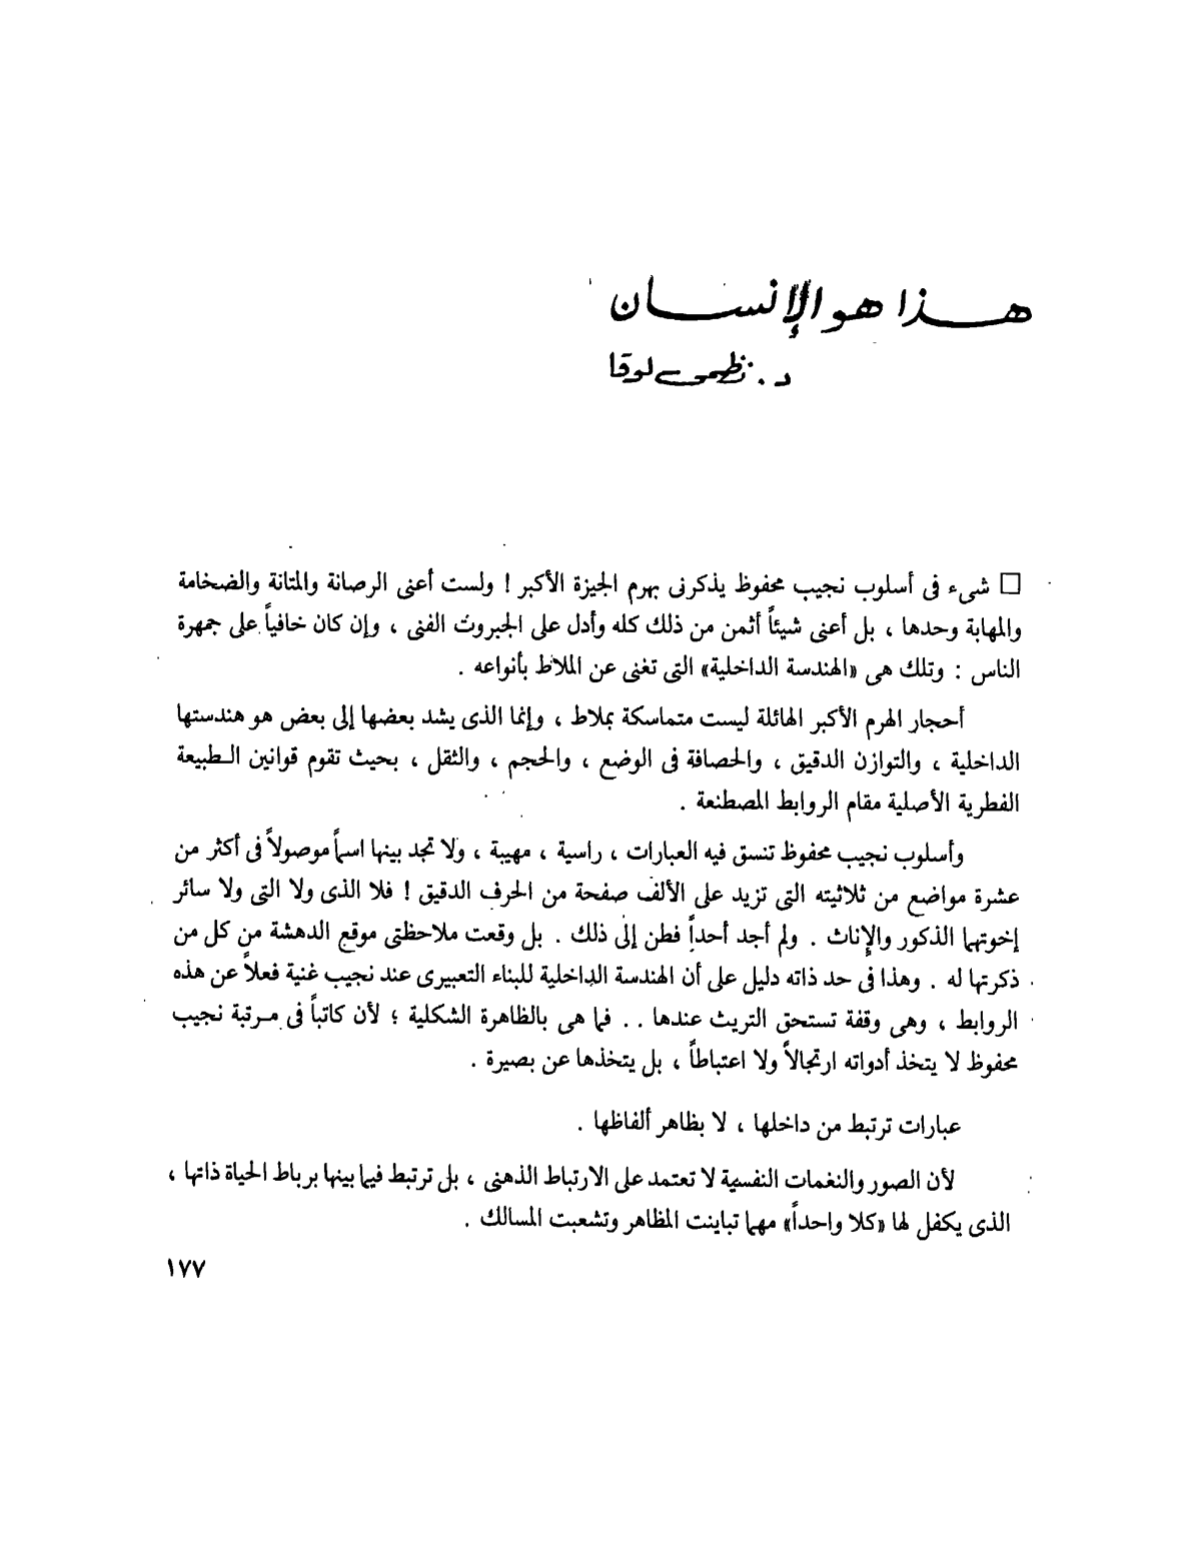 هذا هو الإنسان
د. نظمى لوقا
□ شىء فى أسلوب نجيب محفوظ يذكرنى بهرم الجيزة الأكبر ! ولست أعنى الرصانة والمتانة والضخامة
والمهابة وحدها ، بل أعنى شيئاً أثمن من ذلك كله وأدل على الجبروت الفنى ، وإن كان خافياً على جمهرة
الناس : وتلك هى «الهندسة الداخلية» التى تغنى عن الملاط بأنواعه .
أحجار الهرم الأكبر الهائلة ليست متماسكة بملاط ، وإنما الذى يشد بعضها إلى بعض هو هندستها
الداخلية ، والتوازن الدقيق ، والحصافة فى الوضع ، والحجم ، والثقل ، بحيث تقوم قوانين الطبيعة
الفطرية الأصلية مقام الروابط المصطنعة .
وأسلوب نجيب محفوظ تنسق فيه العبارات ، راسية ، مهيبة ، ولا تجد بينها اسماً موصولاً فى أكثر من
عشرة مواضع من ثلاثيته التى تزيد على الألف صفحة من الحرف الدقيق ! فلا الذى ولا التى ولا سائر
إخوتهما الذكور والإناث . ولم أجد أحداً فطن إلى ذلك . بل وقعت ملاحظتى موقع الدهشة من كل من
ذكرتها له . وهذا فى حد ذاته دليل على أن الهندسة الداخلية للبناء التعبيرى عند نجيب غنية فعلاً عن هذه
الروابط ، وهى وقفة تستحق التريث عندها . . فما هى بالظاهرة الشكلية ؛ لأن كاتباً فى مرتبة نجيب
محفوظ لا يتخذ أدواته ارتجالاً ولا اعتباطاً ، بل يتخذها عن بصيرة .
عبارات ترتبط من داخلها ، لا بظاهر ألفاظها .
لأن الصور والنغمات النفسية لا تعتمد على الارتباط الذهنى ، بل ترتبط فيما بينها برباط الحياة ذاتها ،
الذى يكفل لها «كلا واحداً» مهما تباينت المظاهر وتشعبت المسالك .
١٧٧